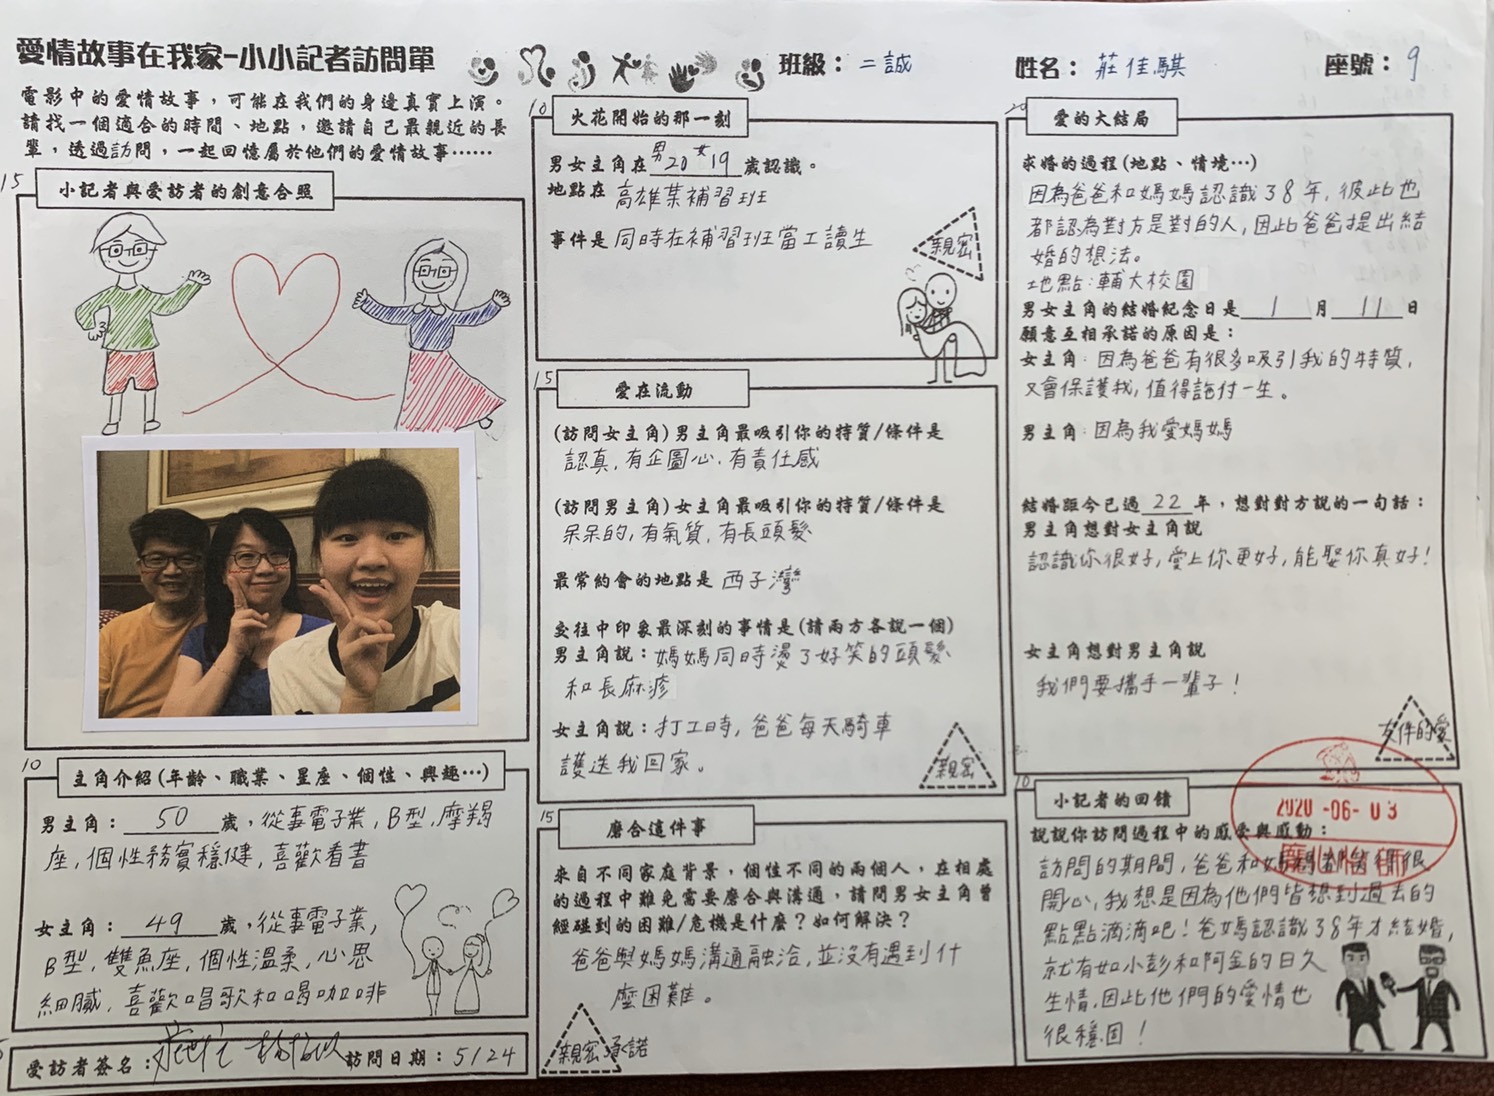 愛情故事在我家-小小記者訪問單
班級：二誠
姓名：莊佳騏
座號：9
電影中的愛情故事，可能在我們的身邊真實上演。
請找一個適合的時間、地點，邀請自己最親近的長
輩，透過訪問，一起回憶屬於他們的愛情故事……
15
小記者與受訪者的創意合照
10
主角介紹(年齡、職業、星座、個性、興趣…)
男主角：50歲，從事電子業,B型,摩羯
座,個性務實穩健,喜歡看書
女主角：49歲，從事電子業,
B型,雙魚座,個性溫柔,心思
細膩,喜歡唱歌和喝咖啡
受訪者簽名：
訪問日期：5/24
10
火花開始的那一刻
男女主角在男20女19歲認識。
地點在 高雄某補習班
事件是 同時在補習班當工讀生
親密
15
愛在流動
(訪問女主角)男主角最吸引你的特質/條件是
認真,有企圖心,有責任感
(訪問男主角)女主角最吸引你的特質/條件是
呆呆的,有氣質,有長頭髮
最常約會的地點是 西子灣
交往中印象最深刻的事情是(請兩方各說一個)
男主角說：媽媽同時燙了好笑的頭髮
和長麻疹
女主角說：打工時,爸爸每天騎車
護送我回家。
親密
15
磨合這件事
來自不同家庭背景，個性不同的兩個人，在相處
的過程中難免需要磨合與溝通，請問男女主角曾
經碰到的困難/危機是什麼？如何解決？
爸爸與媽媽溝通融洽,並沒有遇到什
麼困難。
親密承諾
20
愛的大結局
求婚的過程(地點、情境…)
因為爸爸和媽媽認識38年,彼此也
都認為對方是對的人,因此爸爸提出結
婚的想法。
地點:輔大校園
男女主角的結婚紀念日是1月11日
願意互相承諾的原因是：
女主角:因為爸爸有很多吸引我的特質,
又會保護我,值得託付一生。
男主角:因為我愛媽媽
結婚距今已過22年，想對對方說的一句話：
男主角想對女主角說
認識你很好,愛上你更好,能娶你真好!
女主角想對男主角說
我們要攜手一輩子!
友伴的愛
10
小記者的回饋
2020-06-03
說說你訪問過程中的感受與感動：
訪問的期間,爸爸和媽媽都笑得很
開心,我想是因為他們皆想到過去的
點點滴滴吧!爸媽認識38年才結婚,
就有如小彭和阿金的日久
生情,因此他們的愛情也
很穩固!